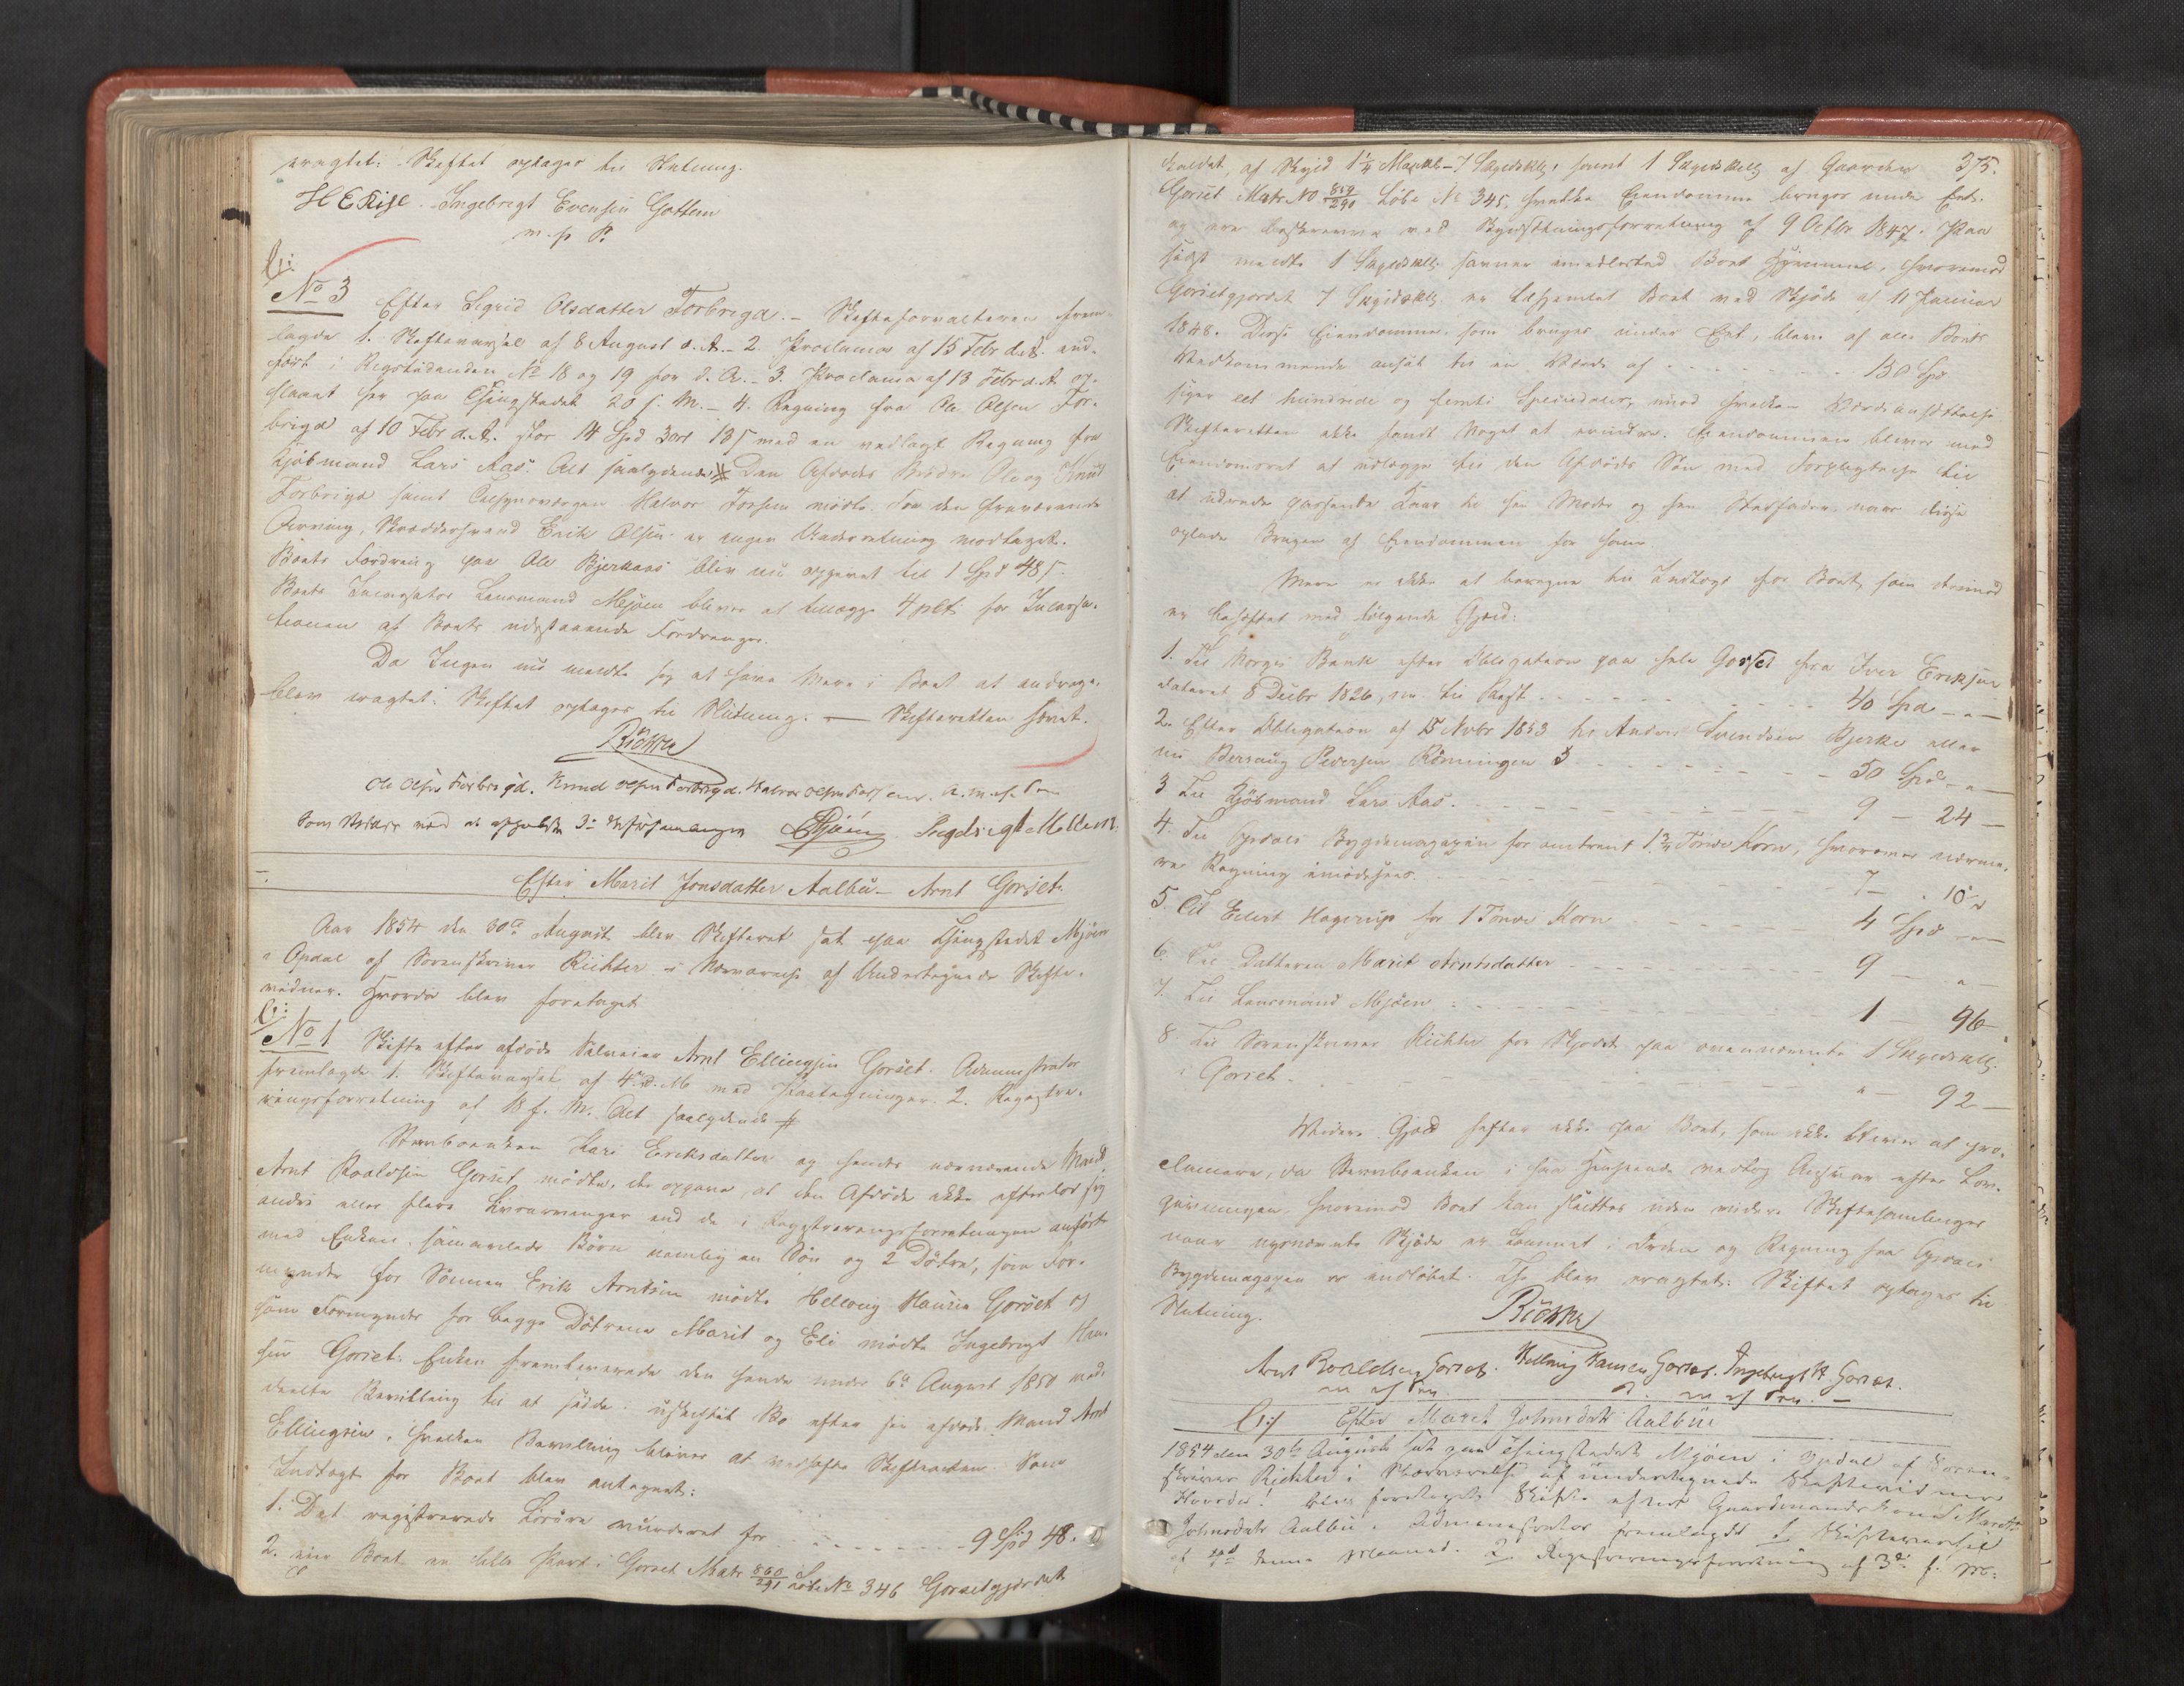 eragtet: Skiftet optages til Slutning.
H E Rise. Ingebrigt Evensen Gottem
m. p. P.
No 3 Efter Sigrid Olsdatter Forbrigd. – Skifteforvalteren frem-
lagde 1. Skiftevarsel af 8 August d. A. – 2. Proclama af 15 Febr d. A. ind-
ført i Rigstidenden No 18 og 19 for d. A. – 3. Proclama af 13 Febr d. A. op-
slaaet her paa Thingstedet 20 f. M. – 4. Regning fra Ole Olsen For-
brigd af 10 Febr d. A. stor 14 Spd 3 ort 13 s med en vedlagt Regning fra
Kjøbmand Lars Aas. Alt saalydende # Den Afdødes Brødre Ole og Knud
Forbrigd samt Tilsynsværgen Halvor Fossem mødte. Fra den fraværende
Arving, Skræddersvend Erik Olsen er ingen Underretning modtaget.
Boets Fordring paa Ole Bjerkaas blev nu opgivet til 1 Spd 48 s.
Boets Incassator Lensmand Mjøen bliver at tillægge 4 pCt. for Incassa-
tionen af Boets udestaaende Fordringer.
Da Ingen nu meldte sig at have Mere i Boet at andrage,
blev eragtet: Skiftet optages til Slutning. — Skifteretten hævet.
Richter
Ole Olsen Forbrigd. Knud Olsen Forbrigd. Halvor Olsen Fossem. m. p. Pen
Som Vidner ved de afholdte 3de Skiftesamlinger Mjøen Ingebrigt Mellem
Efter Marit Jonsdatter Aalbu – Arnt Gorset.
Aar 1854 den 30te August blev Skifteret sat paa Thingstedet Mjøen
i Opdal af Sorenskriver Richter i Nærværelse af Undertegnede Skifte-
vidner. Hvorda blev foretaget
No 1 Skifte efter afdøde Selveier Arnt Ellingsen Gorset. Administrator
fremlagde 1. Skiftevarsel af 4de d. M. med Paategninger. 2. Registre-
ringsforretning af 18 f. M. Alt saalydende #
Stervboenken Kari Eriksdatter og hendes nuværende Mand
Arnt Roaldsen Gorset mødte, de opgave, at den Afdøde ikke efterlod sig
andre eller flere Livsarvinger end de i Registreringsforretningen anførte
med Enken sammenavlede Børn nemlig en Søn og 2 Døtre, som For-
mynder for Sønnen Erik Arntsen mødte Hellvig Hansen Gorset og
som Formynder for begge Døtrene Marit og Eli mødte Ingebrigt Han-
sen Gorset. Enken fremleverede den hende under 6te August 1850 med-
deelte Bevilling til at sidde i uskiftet Bo efter sin afdøde Mand Arnt
Ellingsen, hvilken Bevilling bliver at vedhæfte Skifteakten. Som
Indtægt for Boet blev antegnet:
1. Det registrerede Løsøre vurderet for . . . . . . . . 9 Spd 48.
2. eier Boet en deel Jord i Gorset Matr 860/291 Løbe No 346 Gorsetgjerdet
375.
kaldet, af Skyld 1¼ Mark – 7 Skgdsklg, samt 1 Skgdsklg af Gaarden
Gorset Matr. No 859/290 Løbe No 345, hvilke Eiendomme bruges under Eet
og ere beskrevne ved Bygdsskningsforretning af 9 Octbr 1847. Paa
sidst meldte 1 Skgdsklg savner imidlertid Boet Hjemmel, hvorimod
Gorsetgjerdet 7 Skgdsklg er tilhjemlet Boet ved Skjøde af 11 Januar
1848. Disse Eiendomme, som bruges under Eet, bleve af alle Boets
Vedkommende ansat til en Værdi af . . . . . . . . 150 Spd
siger eet hundrede og femti Speciedaler, imod hvilken Værdiansættelse
Skifteretten ikke fandt Noget at erindre. Eiendommen bliver med
Eiendomsret at udlægge til den Afdødes Søn med Forpligtelse til
at udrede passende Kaar til sin Moder og sin Stedfader, naar disse
oplade Brugen af Eiendommen for ham.
Mere er ikke at beregne til Indtægt for Boet, som derimod
er behæftet med følgende Gjæld:
1. Til Norges Bank efter Obligation paa hele Gorset fra Iver Eriksen
dateret 8 Decbr 1826, nu til Rest . . . . . . . . 40 Spd – " –
2. Efter Obligation af 15 Novbr 1853 til Anders Svendsen Bjerke eller
nu Bersvug Pedersen Rønningen . . . . . . . . 50 Spd – " –
3 Til Kjøbmand Lars Aas. . . . . . . . . 9 – 24 –
4. Til Opdals Bygdemagazin for omtrent 1¾ Tønde Korn, hvorom nærme-
re Regning imødesees. . . . . . . . . 7 – . 10 –
5. Til Edert Hagerup for 1 Tønde Korn . . . . 4 Spd – " –
6. Til Datteren Marit Arntsdatter . . . . . . . . 9 – " –
7. Til Lensmand Mjøen . . . . . . . . 1 – 96 –
8. Til Sorenskriver Richter for Skjødet paa ovennævnte 1 Skgdsklg.
i Gorset. . . . . . . . . " – 92 –
Videre Gjæld hefter ikke paa Boet, som ikke bliver at pro-
clamere, da Stervboenken i saa Henseende vedtog Ansvar efter Lov-
givningen, hvorimod Boet kan sluttes uden videre Skiftesamlinger
naar ommeldte Skjøde er kommet i Orden og Regning fra Opdals
Bygdemagazin er indløbet. Th blev eragtet: Skiftet optages til
Slutning.
Richter
Arnt Roaldsen Gorset. Hellvig Hansen Gorset. Ingebrigt H. Gorset.
m. p. Pen m. p. Pen. –
Efter Maret Johnsdatr Aalbue
1854 den 30te August sat paa Thingstedet Mjøen i Opdal af Soren-
skriver Richter i Nærværelse af undertegnede Skiftevidner
Hvorda! blev foretaget Skifte efter Gaardmandskone Maret
Johnsdatr Aalbu. Administrator fremlagde 1. Skiftevarsel
af 4de denne Maaned. 2. Registreringsforretning af 3de f. M.